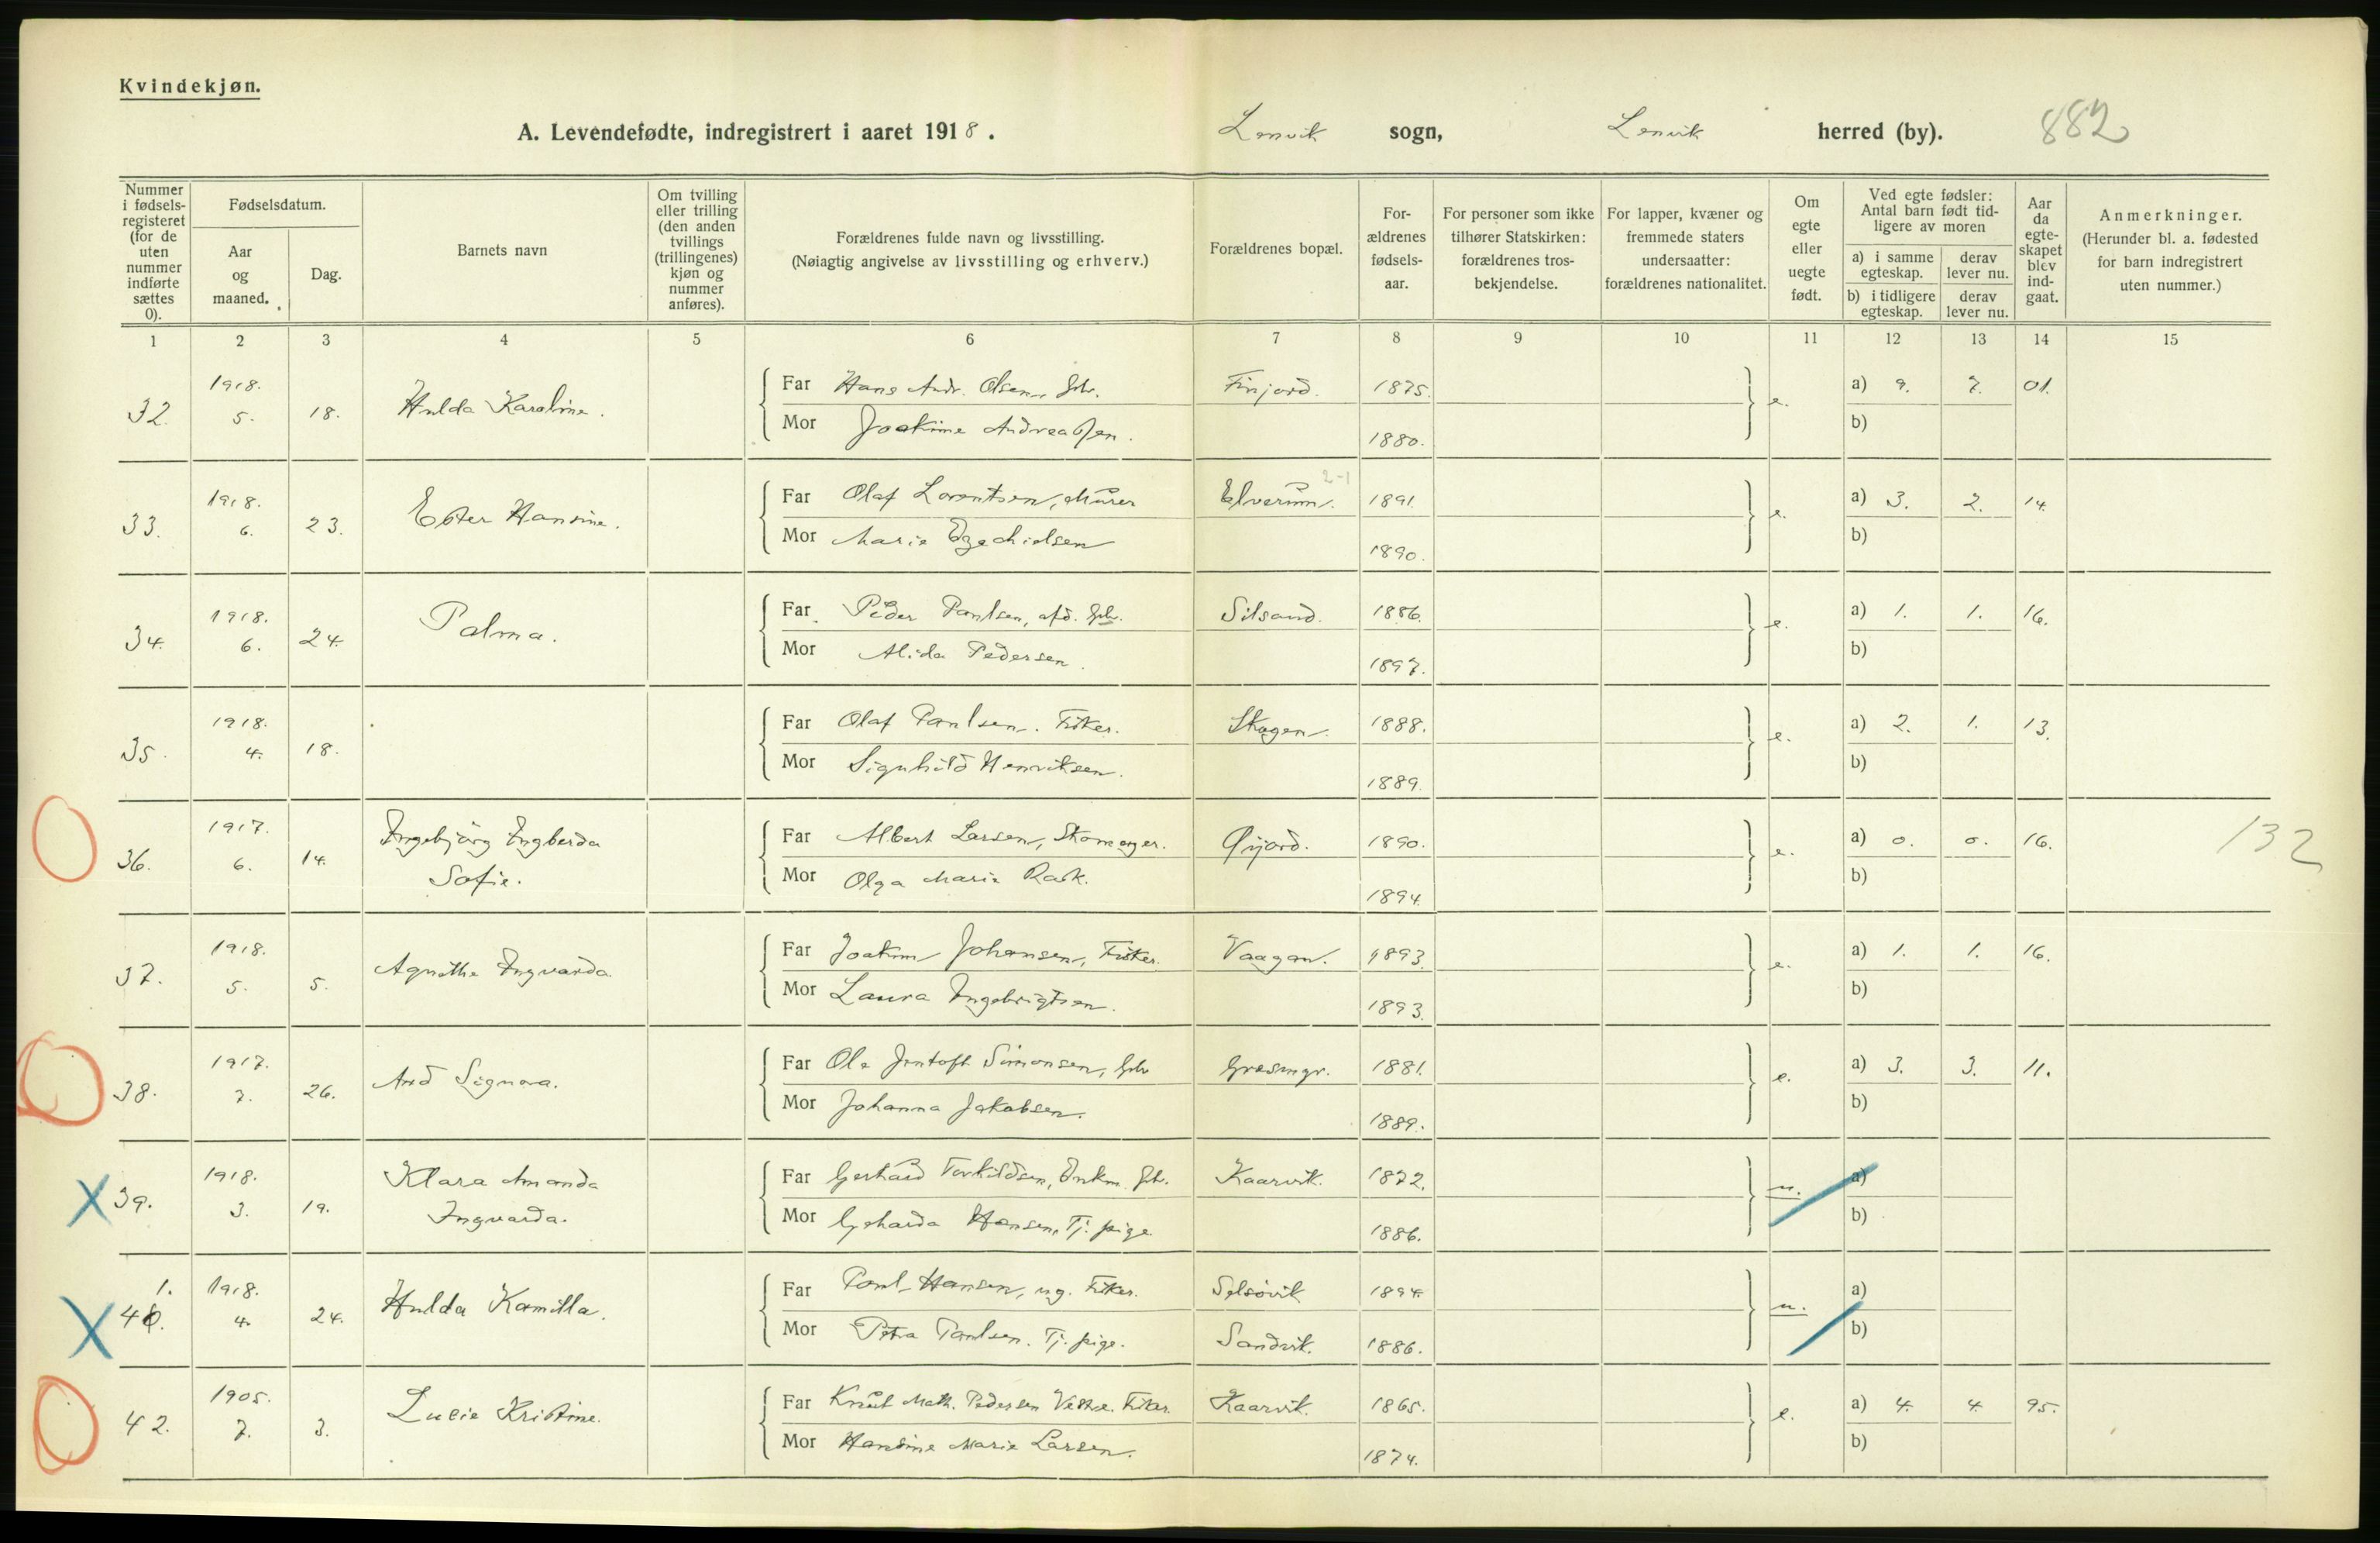 Kvindekjøn.
A. Levendefødte, indregistrert i aaret 1918. Lenvik sogn, Lenvik herred (by). 882
Nummer i fødselsregisteret (for de uten nummer indførte sættes 0).
Fødselsdatum.
Aar og maaned.
Dag.
Barnets navn
Om tvilling eller trilling (den anden tvillings (trillingenes) kjøn og nummer anføres).
Forældrenes fulde navn og livsstilling.
(Nøiagtig angivelse av livsstilling og erhverv.)
Forældrenes bopæl.
Forældrenes fødselsaar.
For personer som ikke tilhører Statskirken: forældrenes trosbekjendelse.
For lapper, kvæner og fremmede staters undersaatter: forældrenes nationalitet.
Om egte eller uegte født.
Ved egte fødsler: Antal barn født tidligere av moren
a) i samme egteskap. derav lever nu.
b) i tidligere egteskap. derav lever nu.
Aar da egteskapet blev indgaat.
Anmerkninger.
(Herunder bl. a. fødested for barn indregistrert uten nummer.)
1 2 3 4 5 6 7 8 9 10 11 12 13 14 15
32. 1918. 5. 18. Hulda Karoline. Far Hans Andr. Olsen, Finjord. 1875. e. a) 9. 7. 01.
Mor Joakime Andreassen. 1880. b)
2-1
33. 1918. 6. 23. Ester Hansine. Far Olaf Lorentsen, Murer Elverum. 1891. e. a) 3. 2. 14.
Mor Marie Ezechielsen 1890. b)
34. 1918. 6. 24. Palma. Far Peder Paulsen, Silsand. 1886. e. a) 1. 1. 16.
Mor Alida Pedersen. 1897. b)
35. 1918. 4. 18. Far Olaf Paulsen. Fisker. Skogen. 1888. e. a) 2. 1. 13.
Mor Signhild Henriksen. 1889. b)
36. 1917. 6. 14. Ingebjørg Ingberda Sofie. Far Albert Larsen, Skomager. Øijord. 1890. e. a) 0. 0. 16. 132
Mor Olga Marie Rask. 1894. b)
37. 1918. 5. 5. Agnethe Ingvarda Far Joakim Johansen, Fisker. Vaagan. 1893. e. a) 1. 1. 16.
Mor Laura Ingebrigtsen. 1893. b)
38. 1917. 7. 26. Signora. Far Ole Jentoft Simonsen, Gresmyr. 1881. e. a) 3. 3. 11.
Mor Johanna Jakobsen. 1889. b)
39. 1918. 3. 19. Klara Amanda Ingvarda. Far Gerhard Torkildsen, Enkm. Kaarvik. 1872. u. a)
Mor Hansen, Tj. pige 1886. b)
1. 40. 1918. 4. 24. Hulda Kamilla. Far Paul Hansen, ug. Fisker. Selsøvik 1894. u. a)
Mor Petra Paulsen. Tj. pige. Sandvik. 1886. b)
42. 1905. 7. 3. Lucie Kristine. Far Knut Math. Pedersen Fisker. Kaarvik. 1865. e. a) 4. 4. 95.
Mor Hansine Marie Larsen. 1874. b)